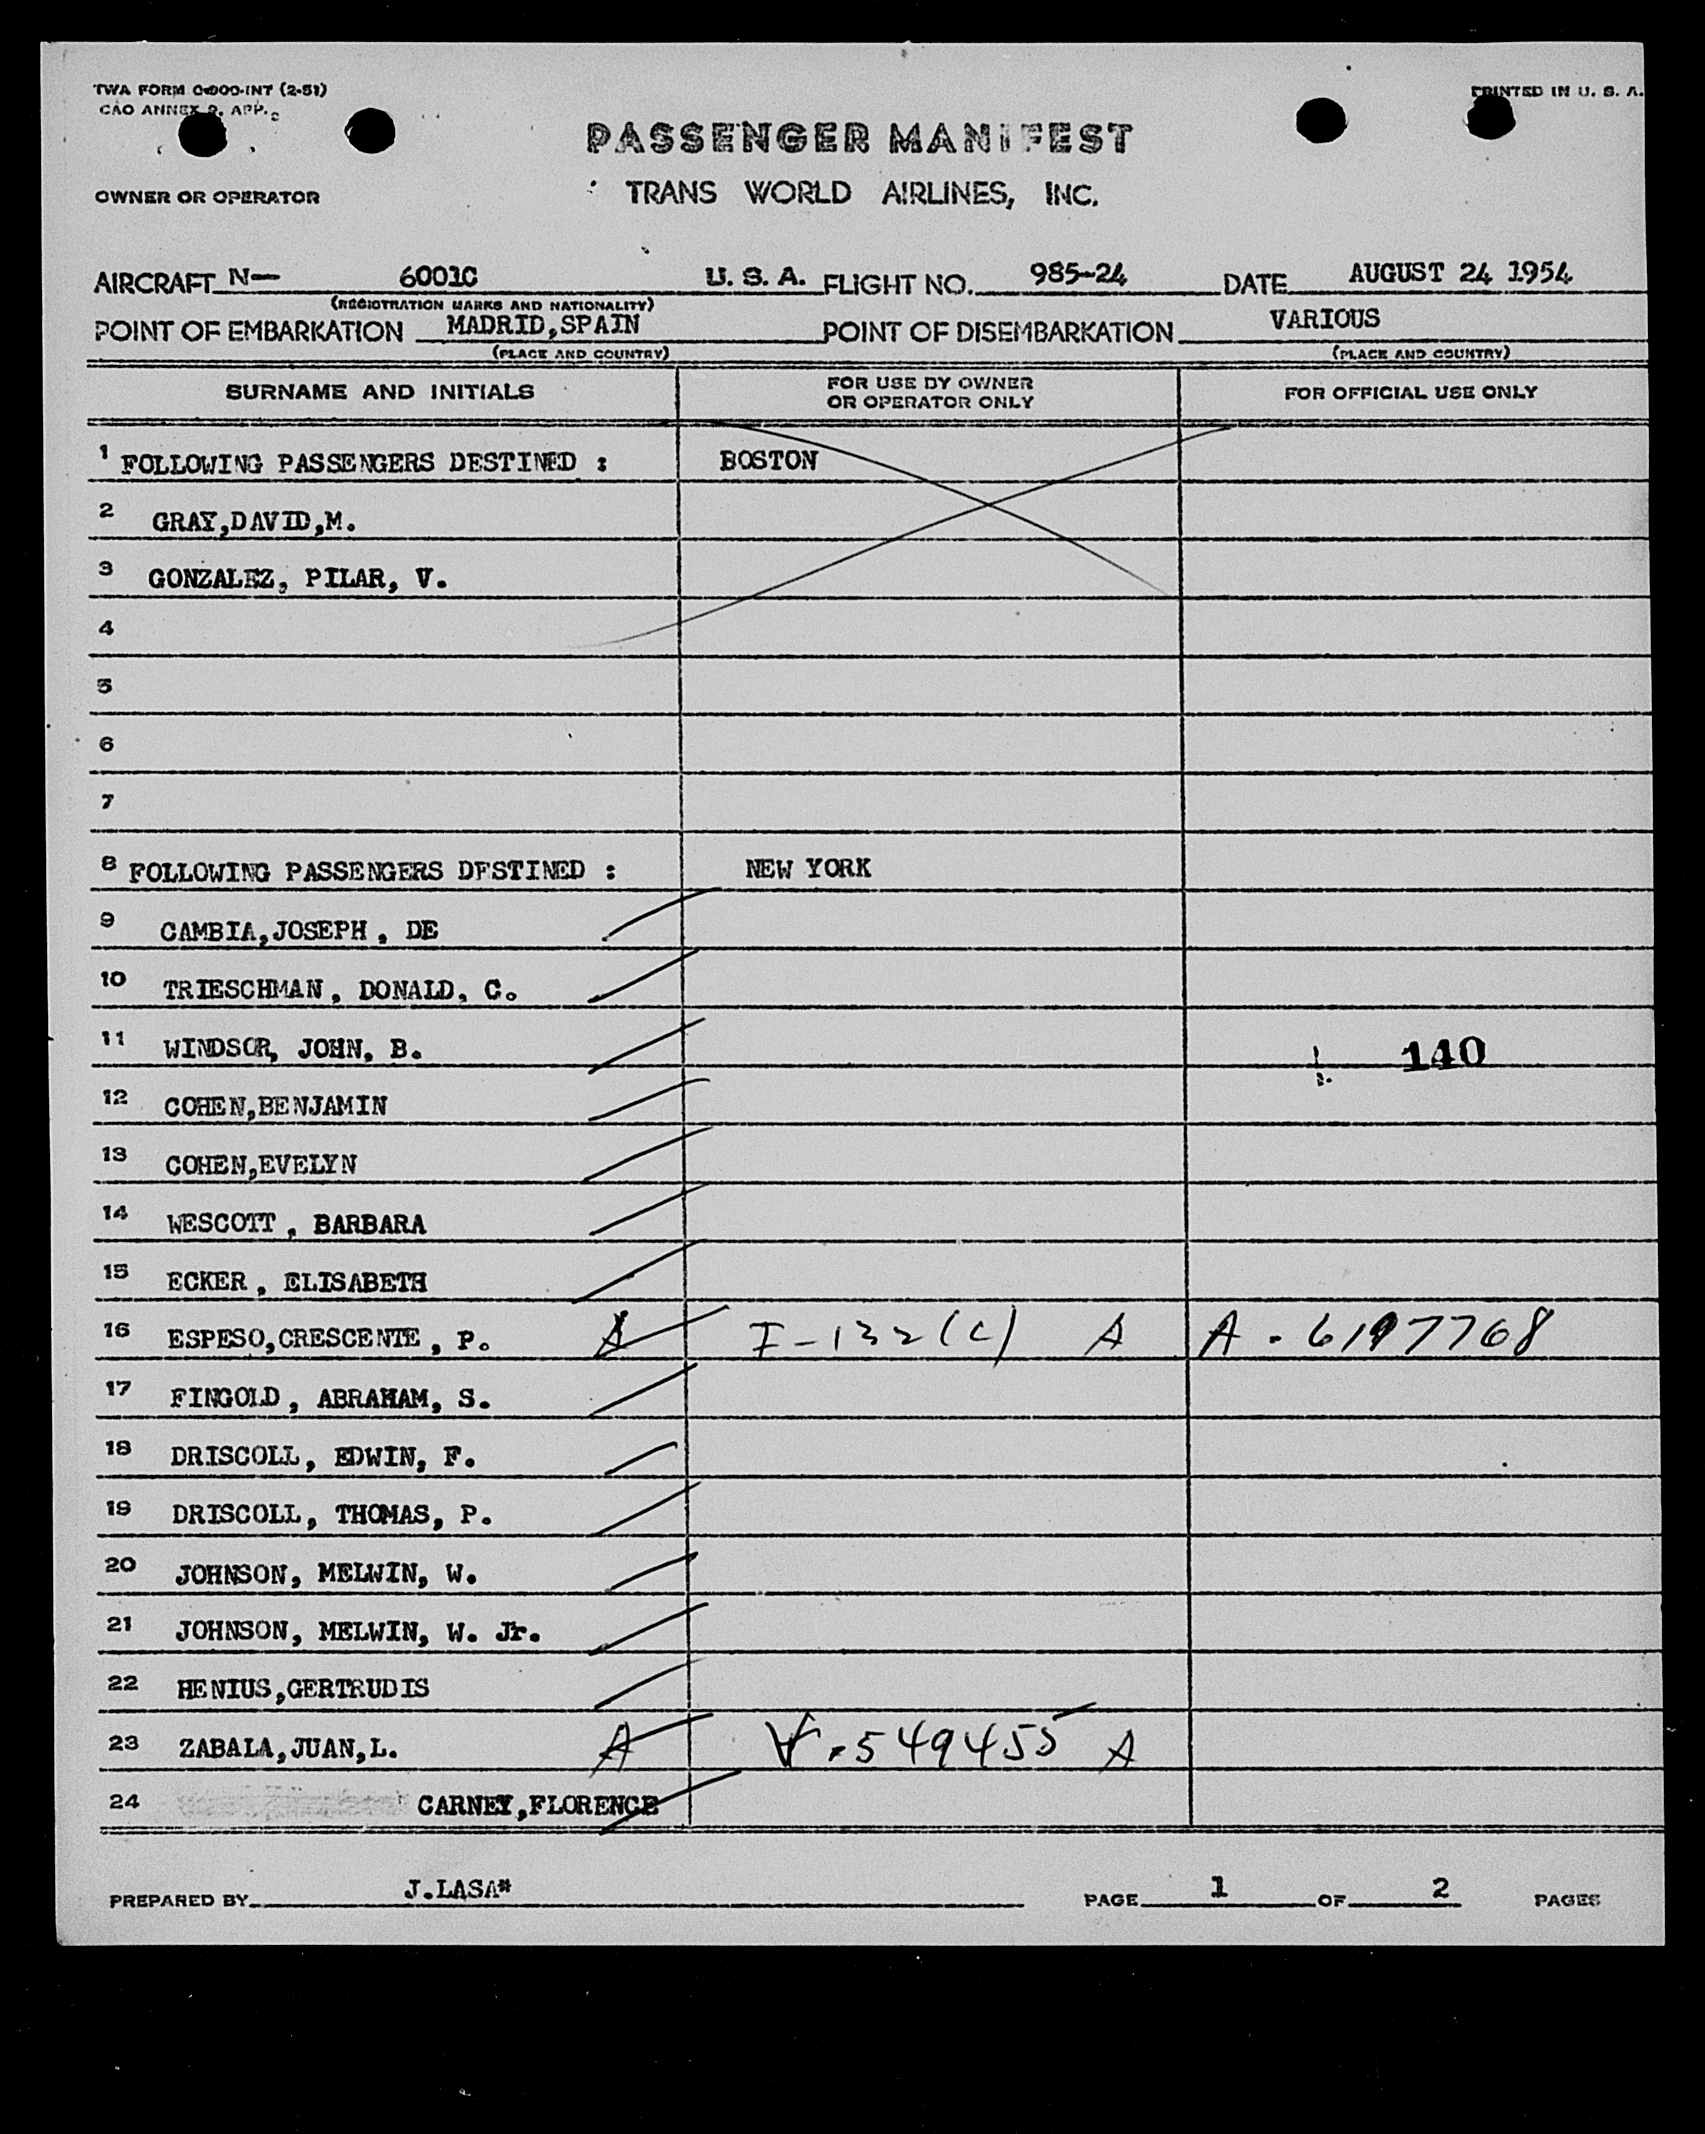 TWA FORM 0-000-INT (2-51)
PRINTED IN U. S. A.
CAO ANNEX 9, APP. 2
PASSENGER MANIFEST
OWNER OR OPERATOR TRANS WORLD AIRLINES, INC.
AIRCRAFT N— 6001C U. S. A. FLIGHT NO. 985-24 DATE AUGUST 24 1954
(REGISTRATION MARKS AND NATIONALITY)
POINT OF EMBARKATION MADRID,SPAIN POINT OF DISEMBARKATION VARIOUS
(PLACE AND COUNTRY) (PLACE AND COUNTRY)
SURNAME AND INITIALS FOR USE BY OWNER OR OPERATOR ONLY FOR OFFICIAL USE ONLY
1 FOLLOWING PASSENGERS DESTINED : BOSTON
2 GRAY,DAVID,M.
3 GONZALEZ, PILAR, V.
4
5
6
7
8 FOLLOWING PASSENGERS DESTINED : NEW YORK
9 CAMBIA,JOSEPH , DE
10 TRIESCHMAN , DONALD, C.
11 WINDSOR, JOHN, B. 140
12 COHEN,BENJAMIN
13 COHEN,EVELYN
14 WESCOTT , BARBARA
15 ECKER , ELISABETH
16 ESPESO,CRESCENTE , P. A I-132(C) A A-6197768
17 FINGOLD , ABRAHAM, S.
18 DRISCOLL, EDWIN, F.
19 DRISCOLL, THOMAS, P.
20 JOHNSON, MELWIN, W.
21 JOHNSON, MELWIN, W. Jr.
22 HENIUS,GERTRUDIS
23 ZABALA,JUAN,L. A V-549455 A
24 CARNEY,FLORENCE
PREPARED BY J.LASA* PAGE 1 OF 2 PAGES